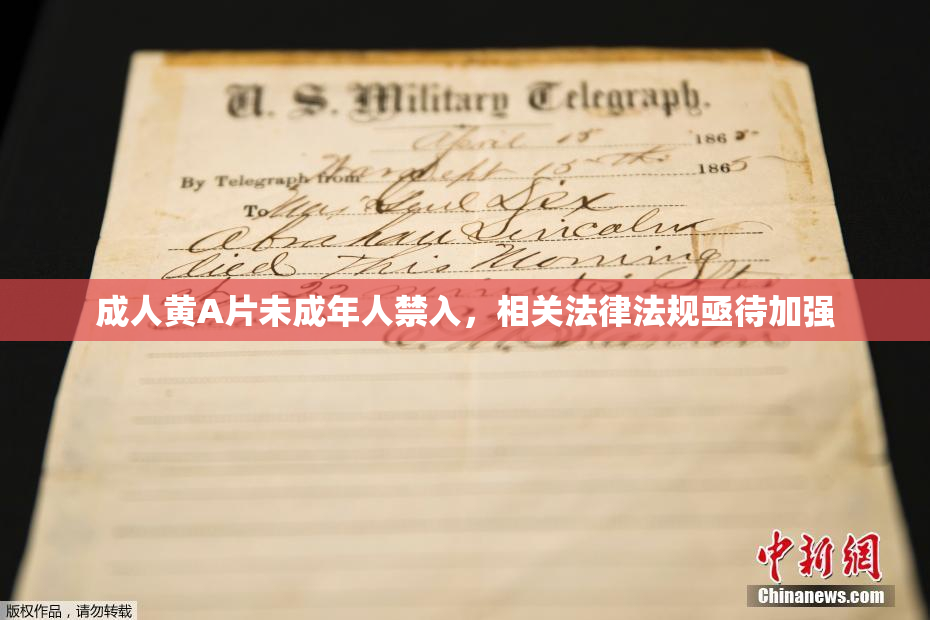 U. S. Military Telegraph.
April 15 1865
By Telegraph from War Dept 15th 1865
To Maj Genl Dix
Abraham Lincoln
died This Morning
at 22 minutes after
成人黄A片未成年人禁入，相关法律法规亟待加强
E. M. Stanton
中新网
Chinanews.com
版权作品，请勿转载